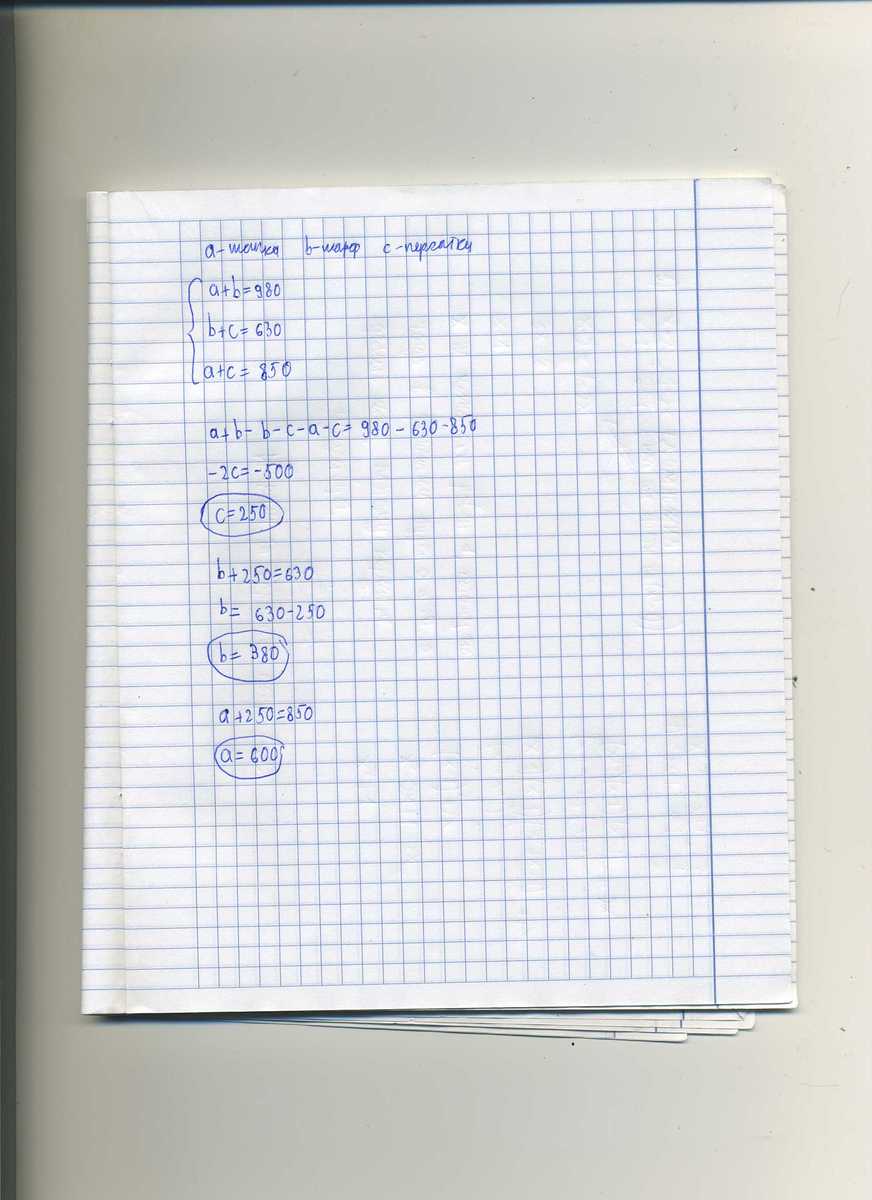 a-шапка b-шарф c-перчатки
a+b=980
b+c=630
a+c=850
a+b-b-c-a-c=980-630-850
-2c=-500
c=250
b+250=630
b=630-250
b=380
a+250=850
a=600